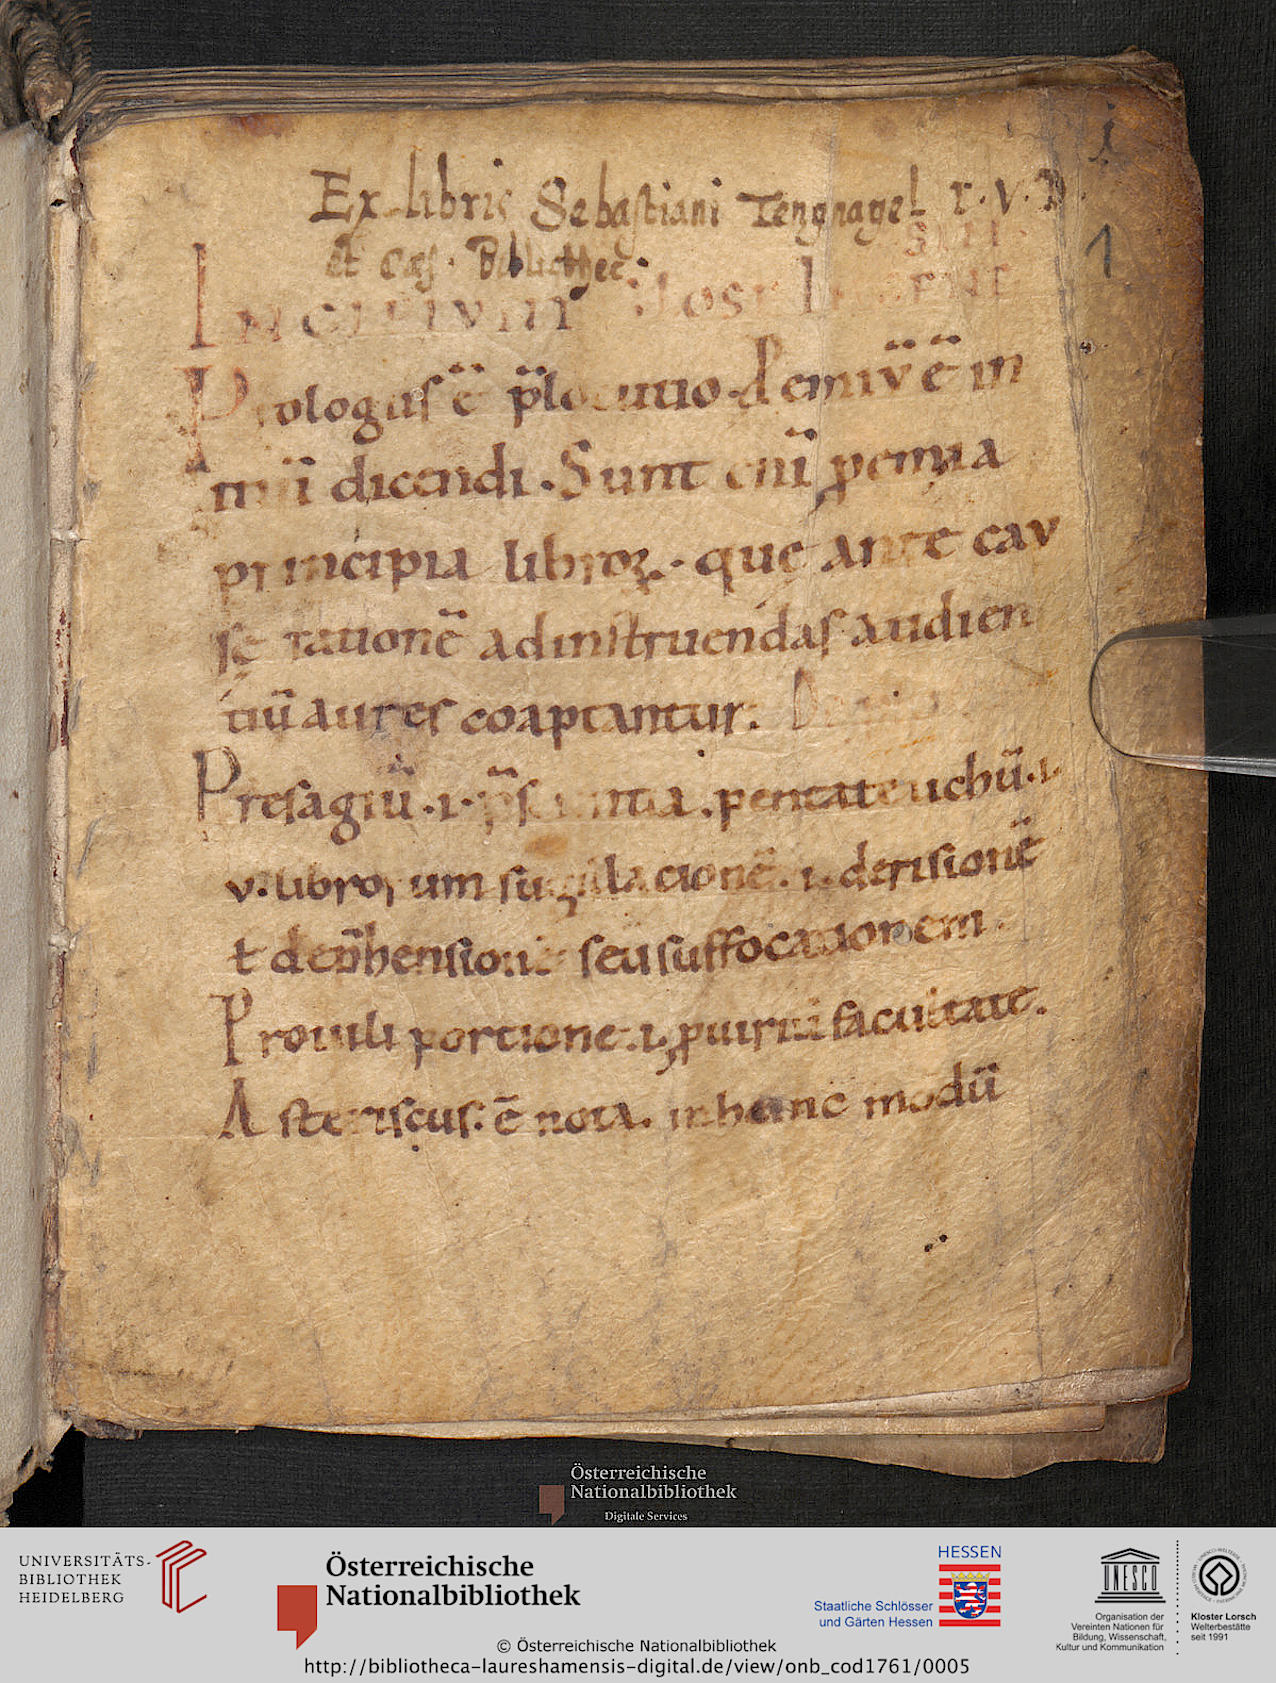 i
Ex libris Sebastiani Tengnagel I. V. D.
et Cæs. Bibliothec:
1
INCIPIVNT
Prologus ē p̄locutio. Pemiū ē in
itiū dicendi. Sunt enī ꝓemia
principia libroꝝ. quę ante cau
sę rationē ad instruendas audien
tiū aures coaptantur.
Presagiū .i. p̄scientia. pentateuchū .i.
v. librorum sugillacionē .i. derisionē
ł dep̄hensionē seu suffocationem.
Prouili portione .i. ꝓuirili facultate.
Asteriscus: ē nota. in hanc modū
Österreichische
Nationalbibliothek
Digitale Services
UNIVERSITÄTS-
BIBLIOTHEK
HEIDELBERG
Österreichische
Nationalbibliothek
HESSEN
Staatliche Schlösser
und Gärten Hessen
UNESCO
Organisation der
Vereinten Nationen für
Bildung, Wissenschaft,
Kultur und Kommunikation
Kloster Lorsch
Welterbestätte
seit 1991
© Österreichische Nationalbibliothek
http://bibliotheca-laureshamensis-digital.de/view/onb_cod1761/0005